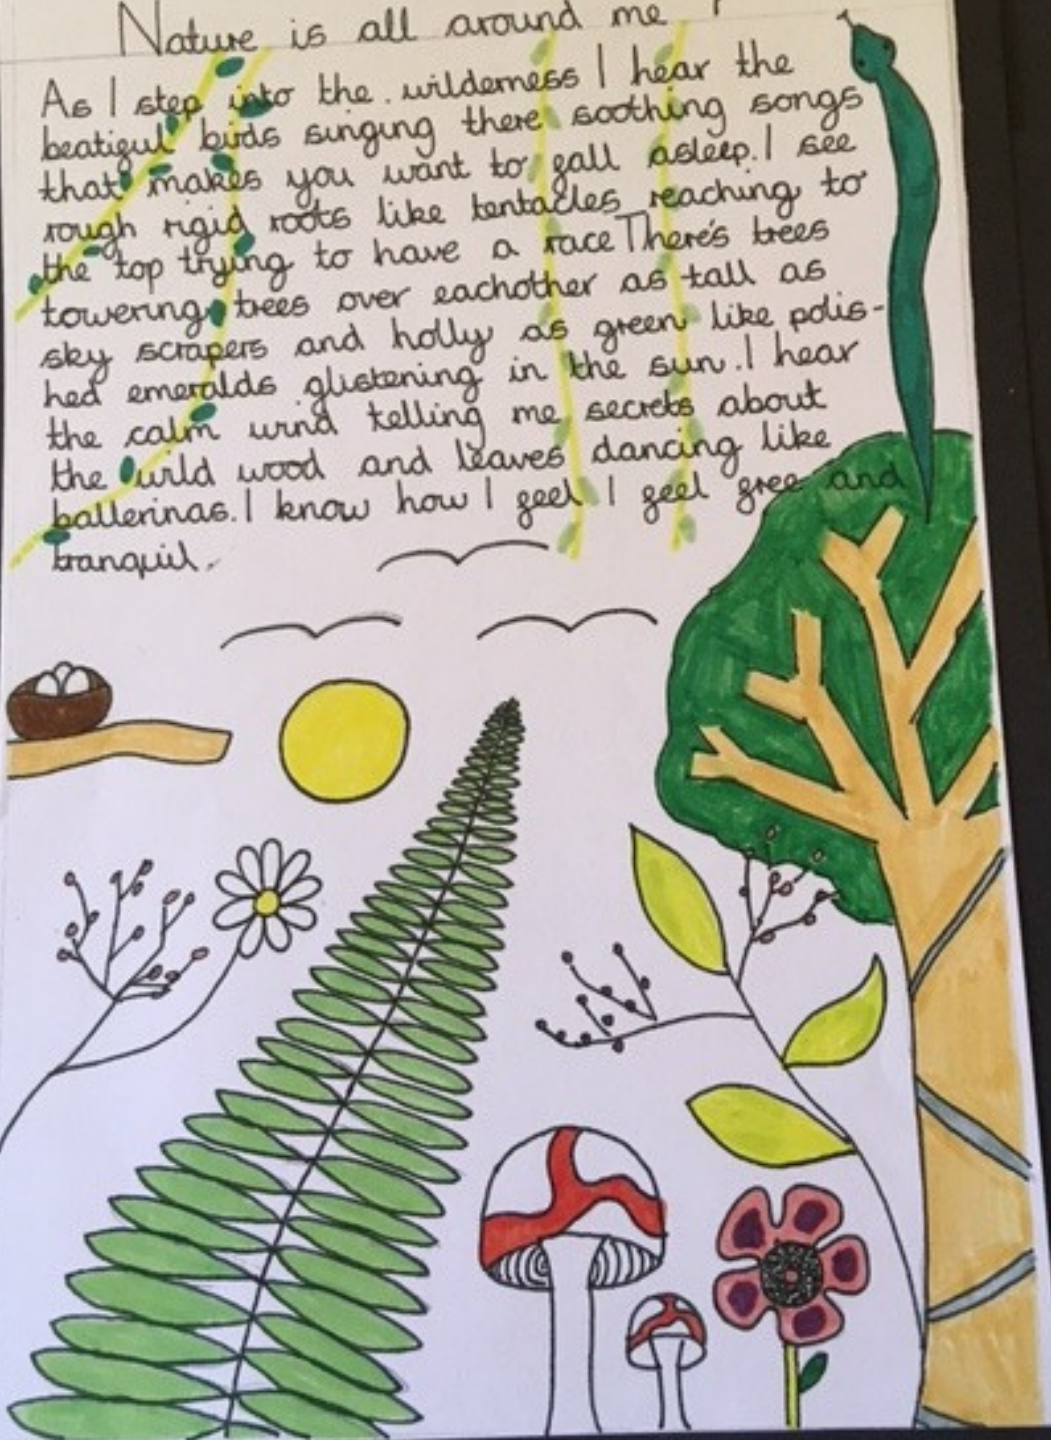 Nature is all around me !
As I step into the wilderness I hear the
beatiful birds singing there soothing songs
that makes you want to fall asleep. I see
rough rigid roots like tentacles reaching to
the top trying to have a race There's trees
towering trees over eachother as tall as
sky scrapers and holly as green like polis-
hed emeralds glistening in the sun. I hear
the calm wind telling me secrets about
the wild wood and leaves dancing like
ballerinas. I know how I feel I feel free and
tranquil.